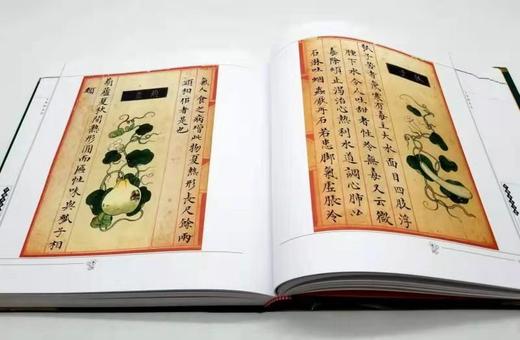 瓠子
瓠子苦者氣寒有毒主大水面目四肢浮
腫下水令人吐甜者性冷無毒又云微
毒除煩止渴治心熱利水道調心肺治
石淋吐蛔蟲壓丹石若患腳氣虛脹冷
氣人食之病增此物夏熟形長尺餘兩
頭相似者是也
葫蘆
葫蘆夏秋間熟形圓而匾性味與瓠子相
類